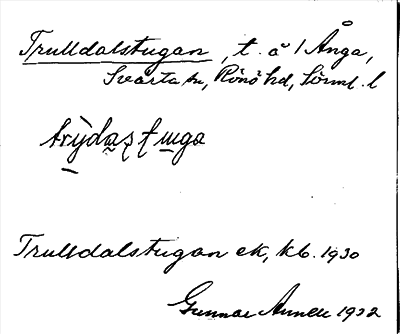 Trulldalstugan, t. å 1 Ånga,
Svärta sn, Rönö hd, Sörml. l
Trulldalstugan ek, kb. 1930
Gunnar Annell 1932